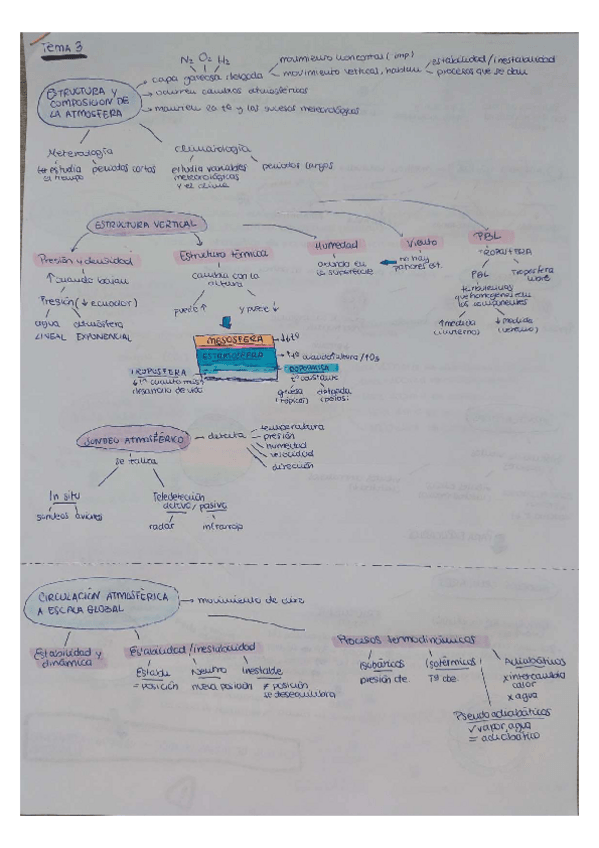 Tema 3
N₂ O₂ H₂
ESTRUCTURA Y
COMPOSICIÓN DE
LA ATMÓSFERA
capa gaseosa delgada
movimiento horizontal (imp)
movimiento vertical, hablan
estabilidad / inestabilidad
procesos que se dan
ocurren cambios atmosféricos
la tª y los sucesos meteorológicos
Meteorología
estudia
el tiempo
periodos cortos
Climatología
estudia variables
meteorológicas
y el clima
periodos largos
ESTRUCTURA VERTICAL
Presión y densidad
↑ cuando bajan
Presión (↓ ecuador)
agua
LINEAL
atmósfera
EXPONENCIAL
Estructura térmica
cambia con la
altura
puede ↑
y puede ↓
Humedad
en
la superficie
Viento
no hay
patrones est.
PBL
TROPOSFERA
PBL
Troposfera
libre
turbulencias
que homogeneizan
los componentes
↑ medida
(invierno)
↓ medida
(verano)
MESOSFERA
↓tª
ESTRATOSFERA
TROPOSFERA
desarrollo de vida
TROPOPAUSA
tª constante
gruesa
(trópicos)
delgada
(polos)
SONDEO ATMOSFÉRICO
detecta
temperatura
presión
humedad
velocidad
dirección
se realiza
In situ
sondeos
aviones
Teledetección
activa / pasiva
radar
infrarrojo
CIRCULACIÓN ATMOSFÉRICA
A ESCALA GLOBAL
movimiento de aire
Estabilidad y
dinámica
Estabilidad / inestabilidad
Estable
= posición
Neutro
nueva posición
Inestable
≠ posición
se desequilibra
Procesos termodinámicos
Isobáricos
presión cte.
Isotérmicos
Tª cte.
Adiabáticos
x intercambia
calor
x agua
Pseudoadiabáticos
✓ vapor agua
= adiabático